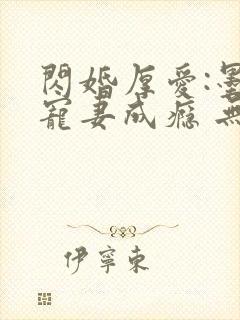 閃婚厚愛:墨
寵妻成癮 無
伊寧東